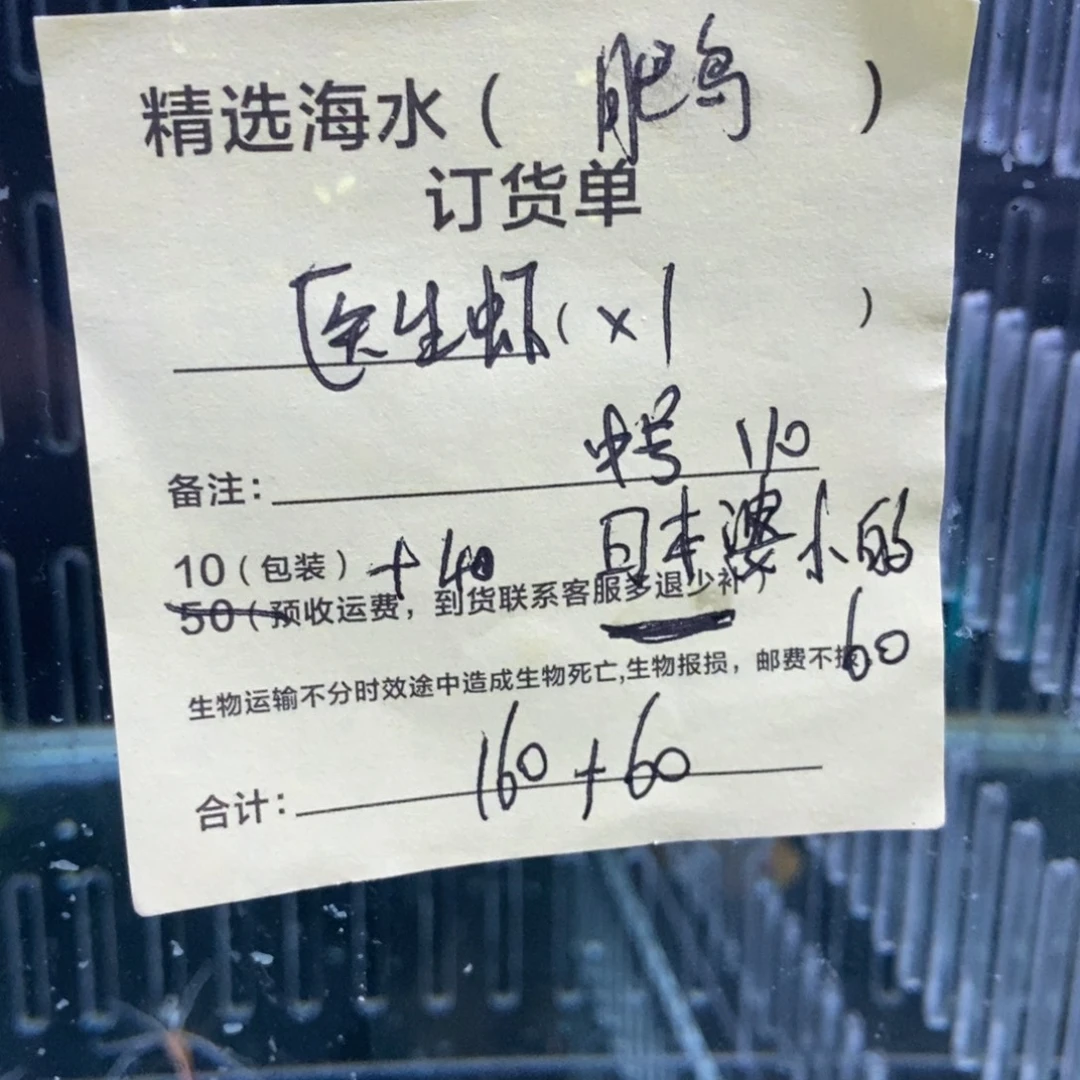 精选海水（肥鸟）
订货单
医生虾（×1）
中号 110
备注：
日本婆小的
10（包装）+40
50（预收运费，到货联系客服多退少补）
60
生物运输不分时效途中造成生物死亡,生物报损，邮费不
合计：160+60